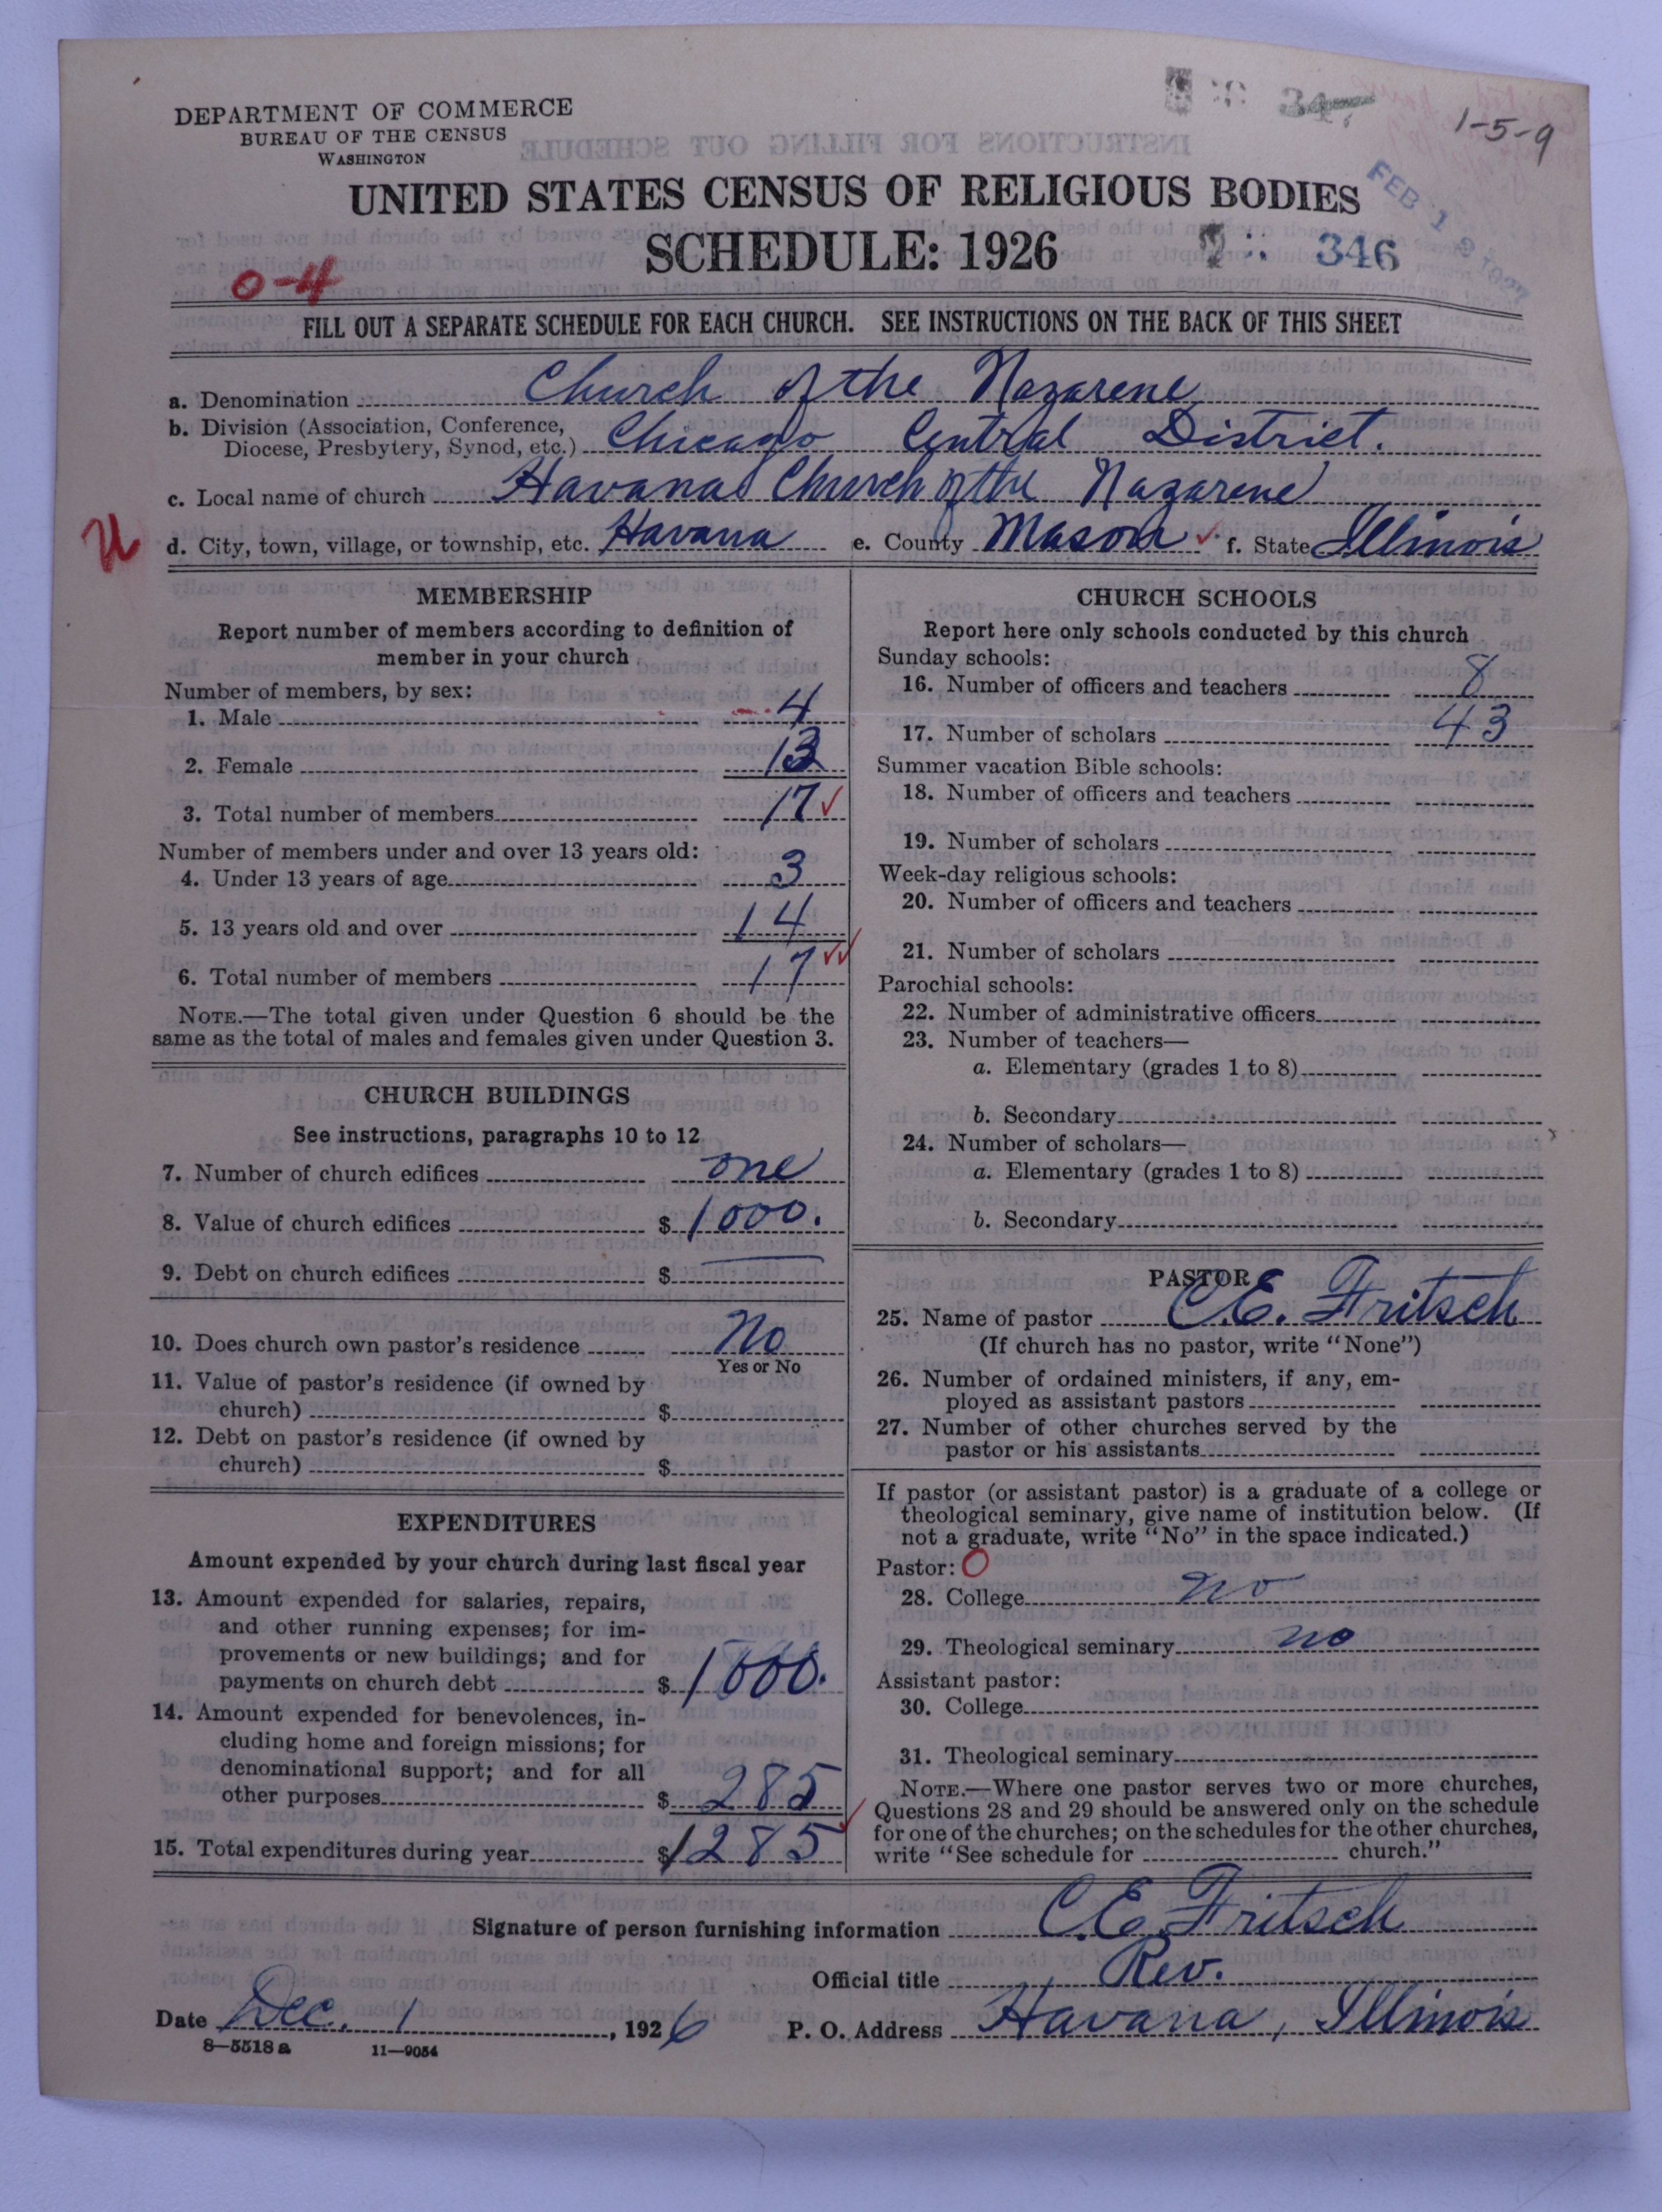 DEPARTMENT OF COMMERCE
BUREAU OF THE CENSUS
WASHINGTON
1-5-9
UNITED STATES CENSUS OF RELIGIOUS BODIES
SCHEDULE: 1926
FEB 19 1927
346
0-4
FILL OUT A SEPARATE SCHEDULE FOR EACH CHURCH. SEE INSTRUCTIONS ON THE BACK OF THIS SHEET
a. Denomination Church of the Nazarene
b. Division (Association, Conference,
Diocese, Presbytery, Synod, etc.) Chicago Central District.
c. Local name of church Havana Church of the Nazarene
d. City, town, village, or township, etc. Havana e. County Mason f. State Illinois
MEMBERSHIP
Report number of members according to definition of
member in your church
Number of members, by sex:
1. Male 4
2. Female 13
3. Total number of members 17
Number of members under and over 13 years old:
4. Under 13 years of age 3
5. 13 years old and over 14
6. Total number of members 17
NOTE.—The total given under Question 6 should be the
same as the total of males and females given under Question 3.
CHURCH BUILDINGS
See instructions, paragraphs 10 to 12
7. Number of church edifices one
8. Value of church edifices $ 1000.
9. Debt on church edifices $
10. Does church own pastor's residence No
Yes or No
11. Value of pastor's residence (if owned by
church) $
12. Debt on pastor's residence (if owned by
church) $
EXPENDITURES
Amount expended by your church during last fiscal year
13. Amount expended for salaries, repairs,
and other running expenses; for im-
provements or new buildings; and for
payments on church debt $ 1000.
14. Amount expended for benevolences, in-
cluding home and foreign missions; for
denominational support; and for all
other purposes $ 285
15. Total expenditures during year $ 1285
CHURCH SCHOOLS
Report here only schools conducted by this church
Sunday schools:
16. Number of officers and teachers 8
17. Number of scholars 43
Summer vacation Bible schools:
18. Number of officers and teachers
19. Number of scholars
Week-day religious schools:
20. Number of officers and teachers
21. Number of scholars
Parochial schools:
22. Number of administrative officers
23. Number of teachers—
a. Elementary (grades 1 to 8)
b. Secondary
24. Number of scholars—
a. Elementary (grades 1 to 8)
b. Secondary
PASTOR
25. Name of pastor C.E. Fritsch
(If church has no pastor, write "None")
26. Number of ordained ministers, if any, em-
ployed as assistant pastors
27. Number of other churches served by the
pastor or his assistants
If pastor (or assistant pastor) is a graduate of a college or
theological seminary, give name of institution below. (If
not a graduate, write "No" in the space indicated.)
Pastor: O
28. College no
29. Theological seminary no
Assistant pastor:
30. College
31. Theological seminary
NOTE.—Where one pastor serves two or more churches,
Questions 28 and 29 should be answered only on the schedule
for one of the churches; on the schedules for the other churches,
write "See schedule for church."
Signature of person furnishing information C.E. Fritsch
Official title Rev.
Date Dec. 1, 1926 P. O. Address Havana, Illinois
8—5518a 11—9054